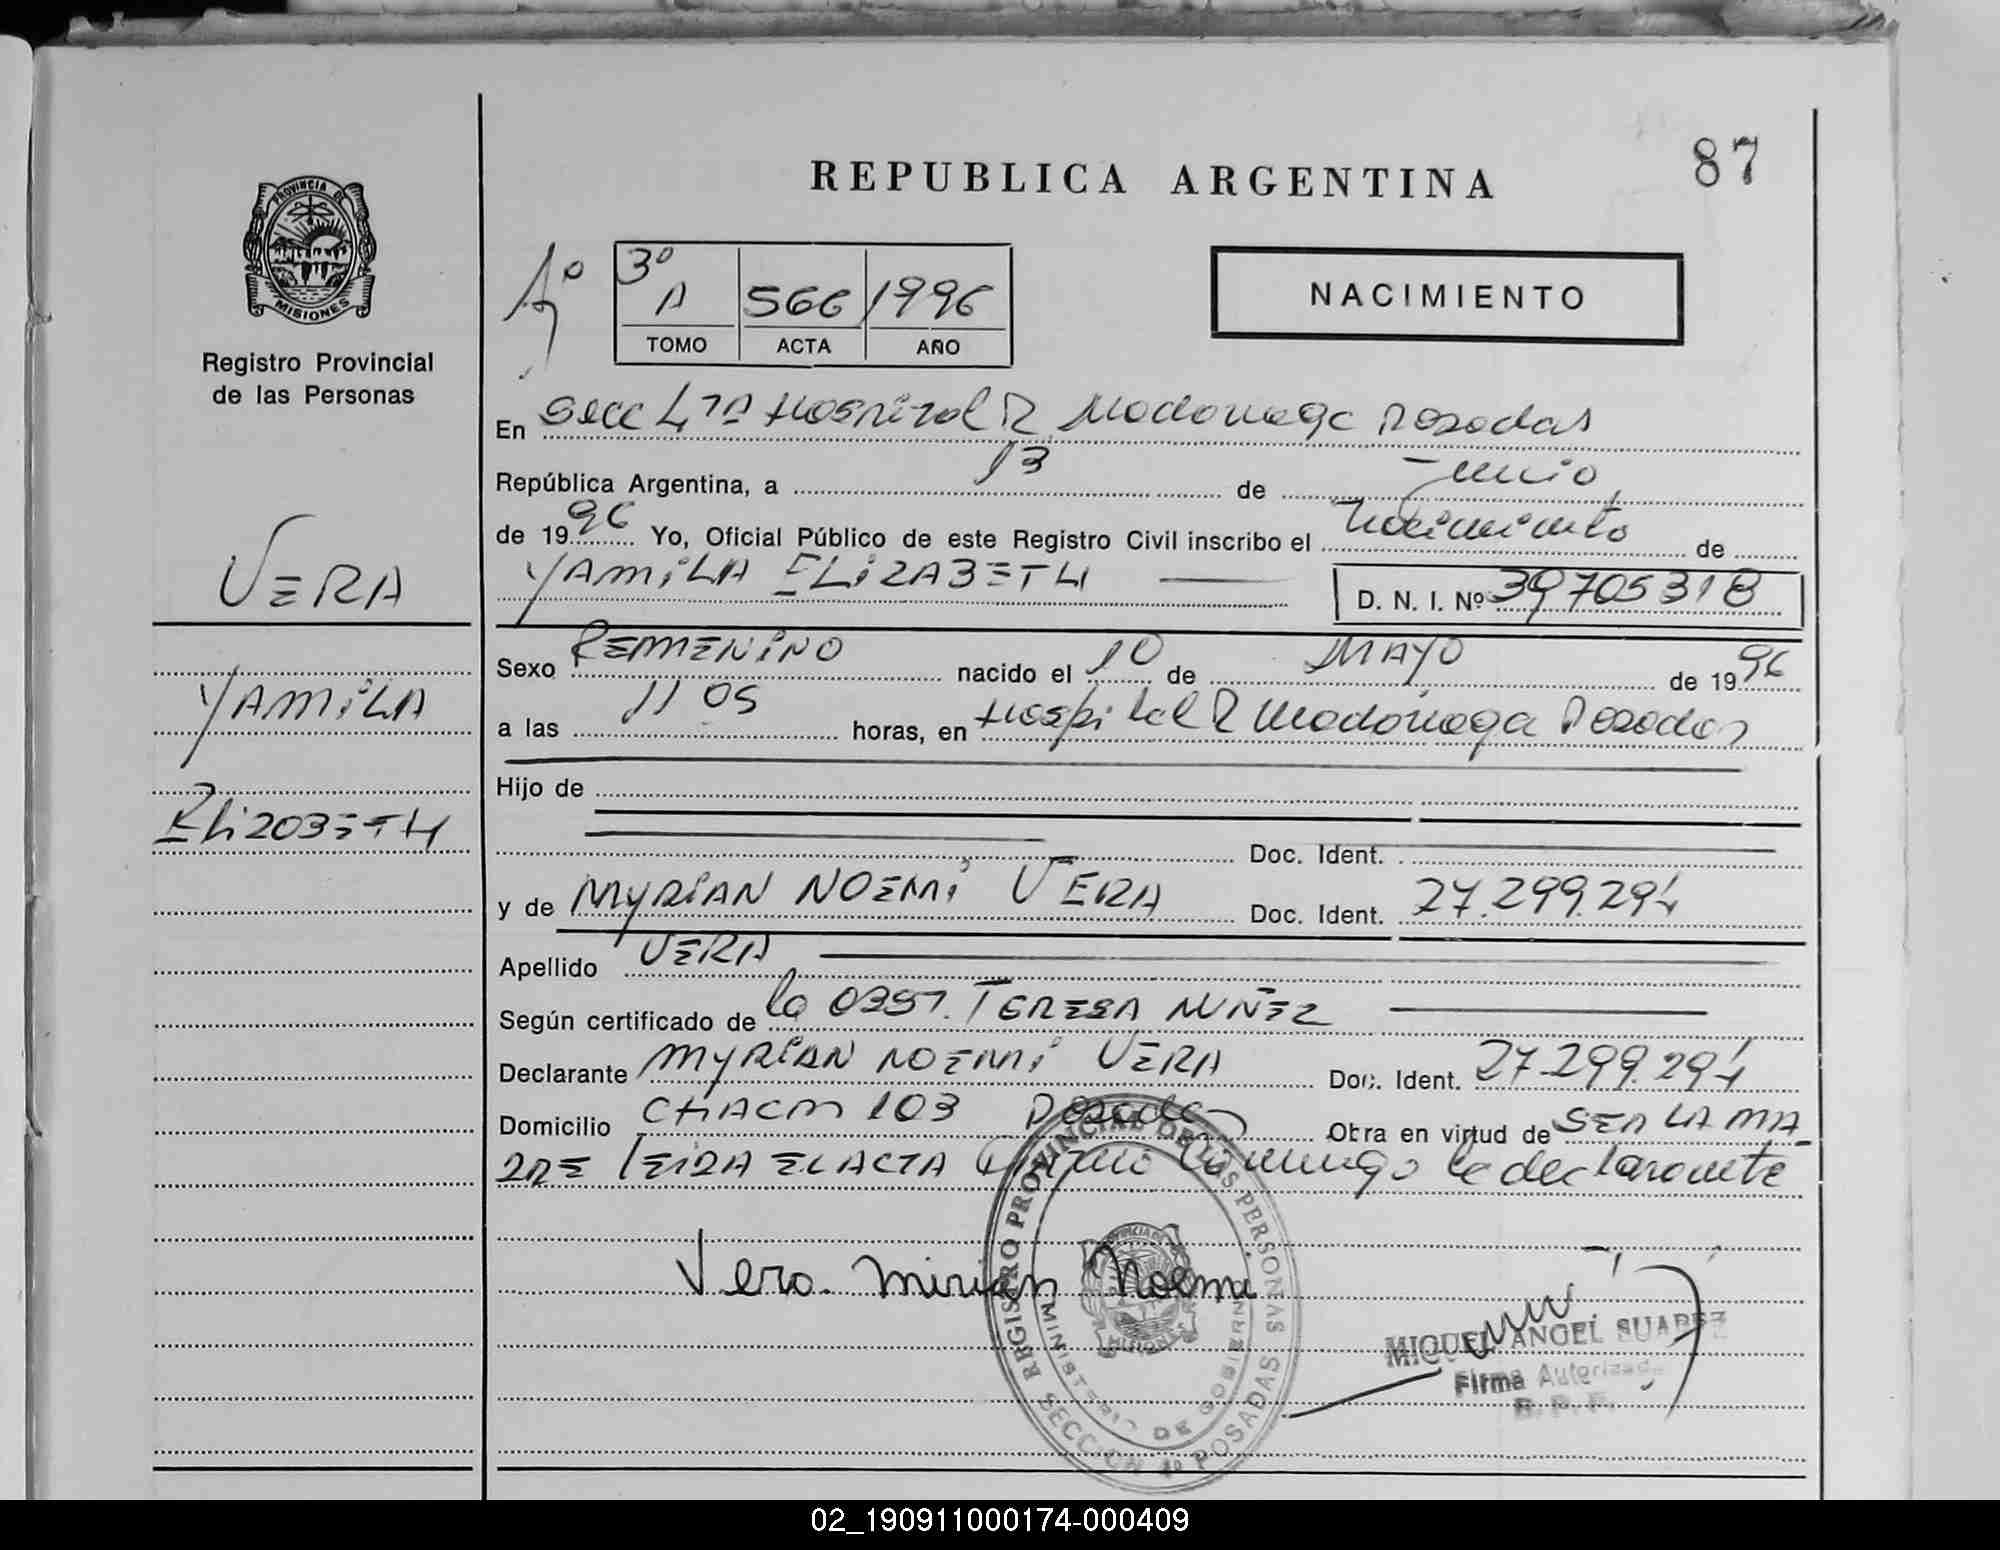 87
REPUBLICA ARGENTINA
PROVINCIA DE
MISIONES
Registro Provincial
de las Personas
3º
A 566 1996
TOMO ACTA AÑO
NACIMIENTO
En Secc 4ta Hospital R Madariaga Posadas
República Argentina, a 13 de Junio
de 1996 Yo, Oficial Público de este Registro Civil inscribo el Nacimiento de
YAMiLA ELiZABETH D. N. I. Nº 39705318
VERA
YAMiLA
ELiZABETH
Sexo FEMENINO nacido el 10 de MAYO de 1996
a las 11 05 horas, en Hospital R Madariaga Posadas
Hijo de
Doc. Ident.
y de MYRIAN NOEMi VERA Doc. Ident. 27.299.294
Apellido VERA
Según certificado de la OBST. TERESA NUÑEZ
Declarante MYRIAN NOEMi VERA Doc. Ident. 27.299.294
Domicilio CHACRA 103 Posadas Obra en virtud de SER LA MA-
DRE LEIDA EL ACTA conmigo la declarante
Vera. Mirian Noemi
REGISTRO PROVINCIAL DE LAS PERSONAS
MINISTERIO DE GOBIERNO
SECCION 4º POSADAS
PROVINCIA DE
MISIONES
MIGUEL ANGEL SUAREZ
Firma Autorizada
02_190911000174-000409